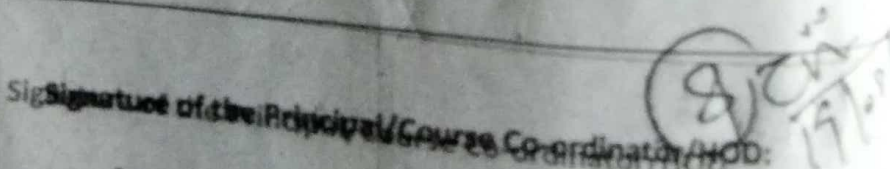 8
Signature of the Principal/Course Co-ordinator/HOD: